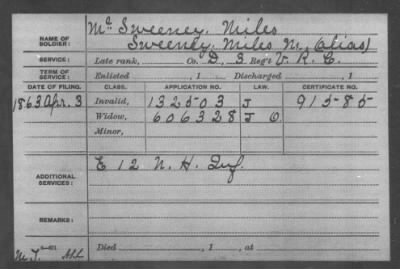 NAME OF SOLDIER: Mc Sweeney, Miles
Sweeney, Miles M., (alias)
SERVICE: Late rank, Co. D, 3 Reg't V. R. C.
TERM OF SERVICE: Enlisted , 1 Discharged , 1
DATE OF FILING. CLASS. APPLICATION NO. LAW. CERTIFICATE NO.
1863 Apr. 3 Invalid, 132503 J 91585
Widow, 606328 J O
Minor,
ADDITIONAL SERVICES: E 12 N. H. Inf.
REMARKS:
Died , 1 , at